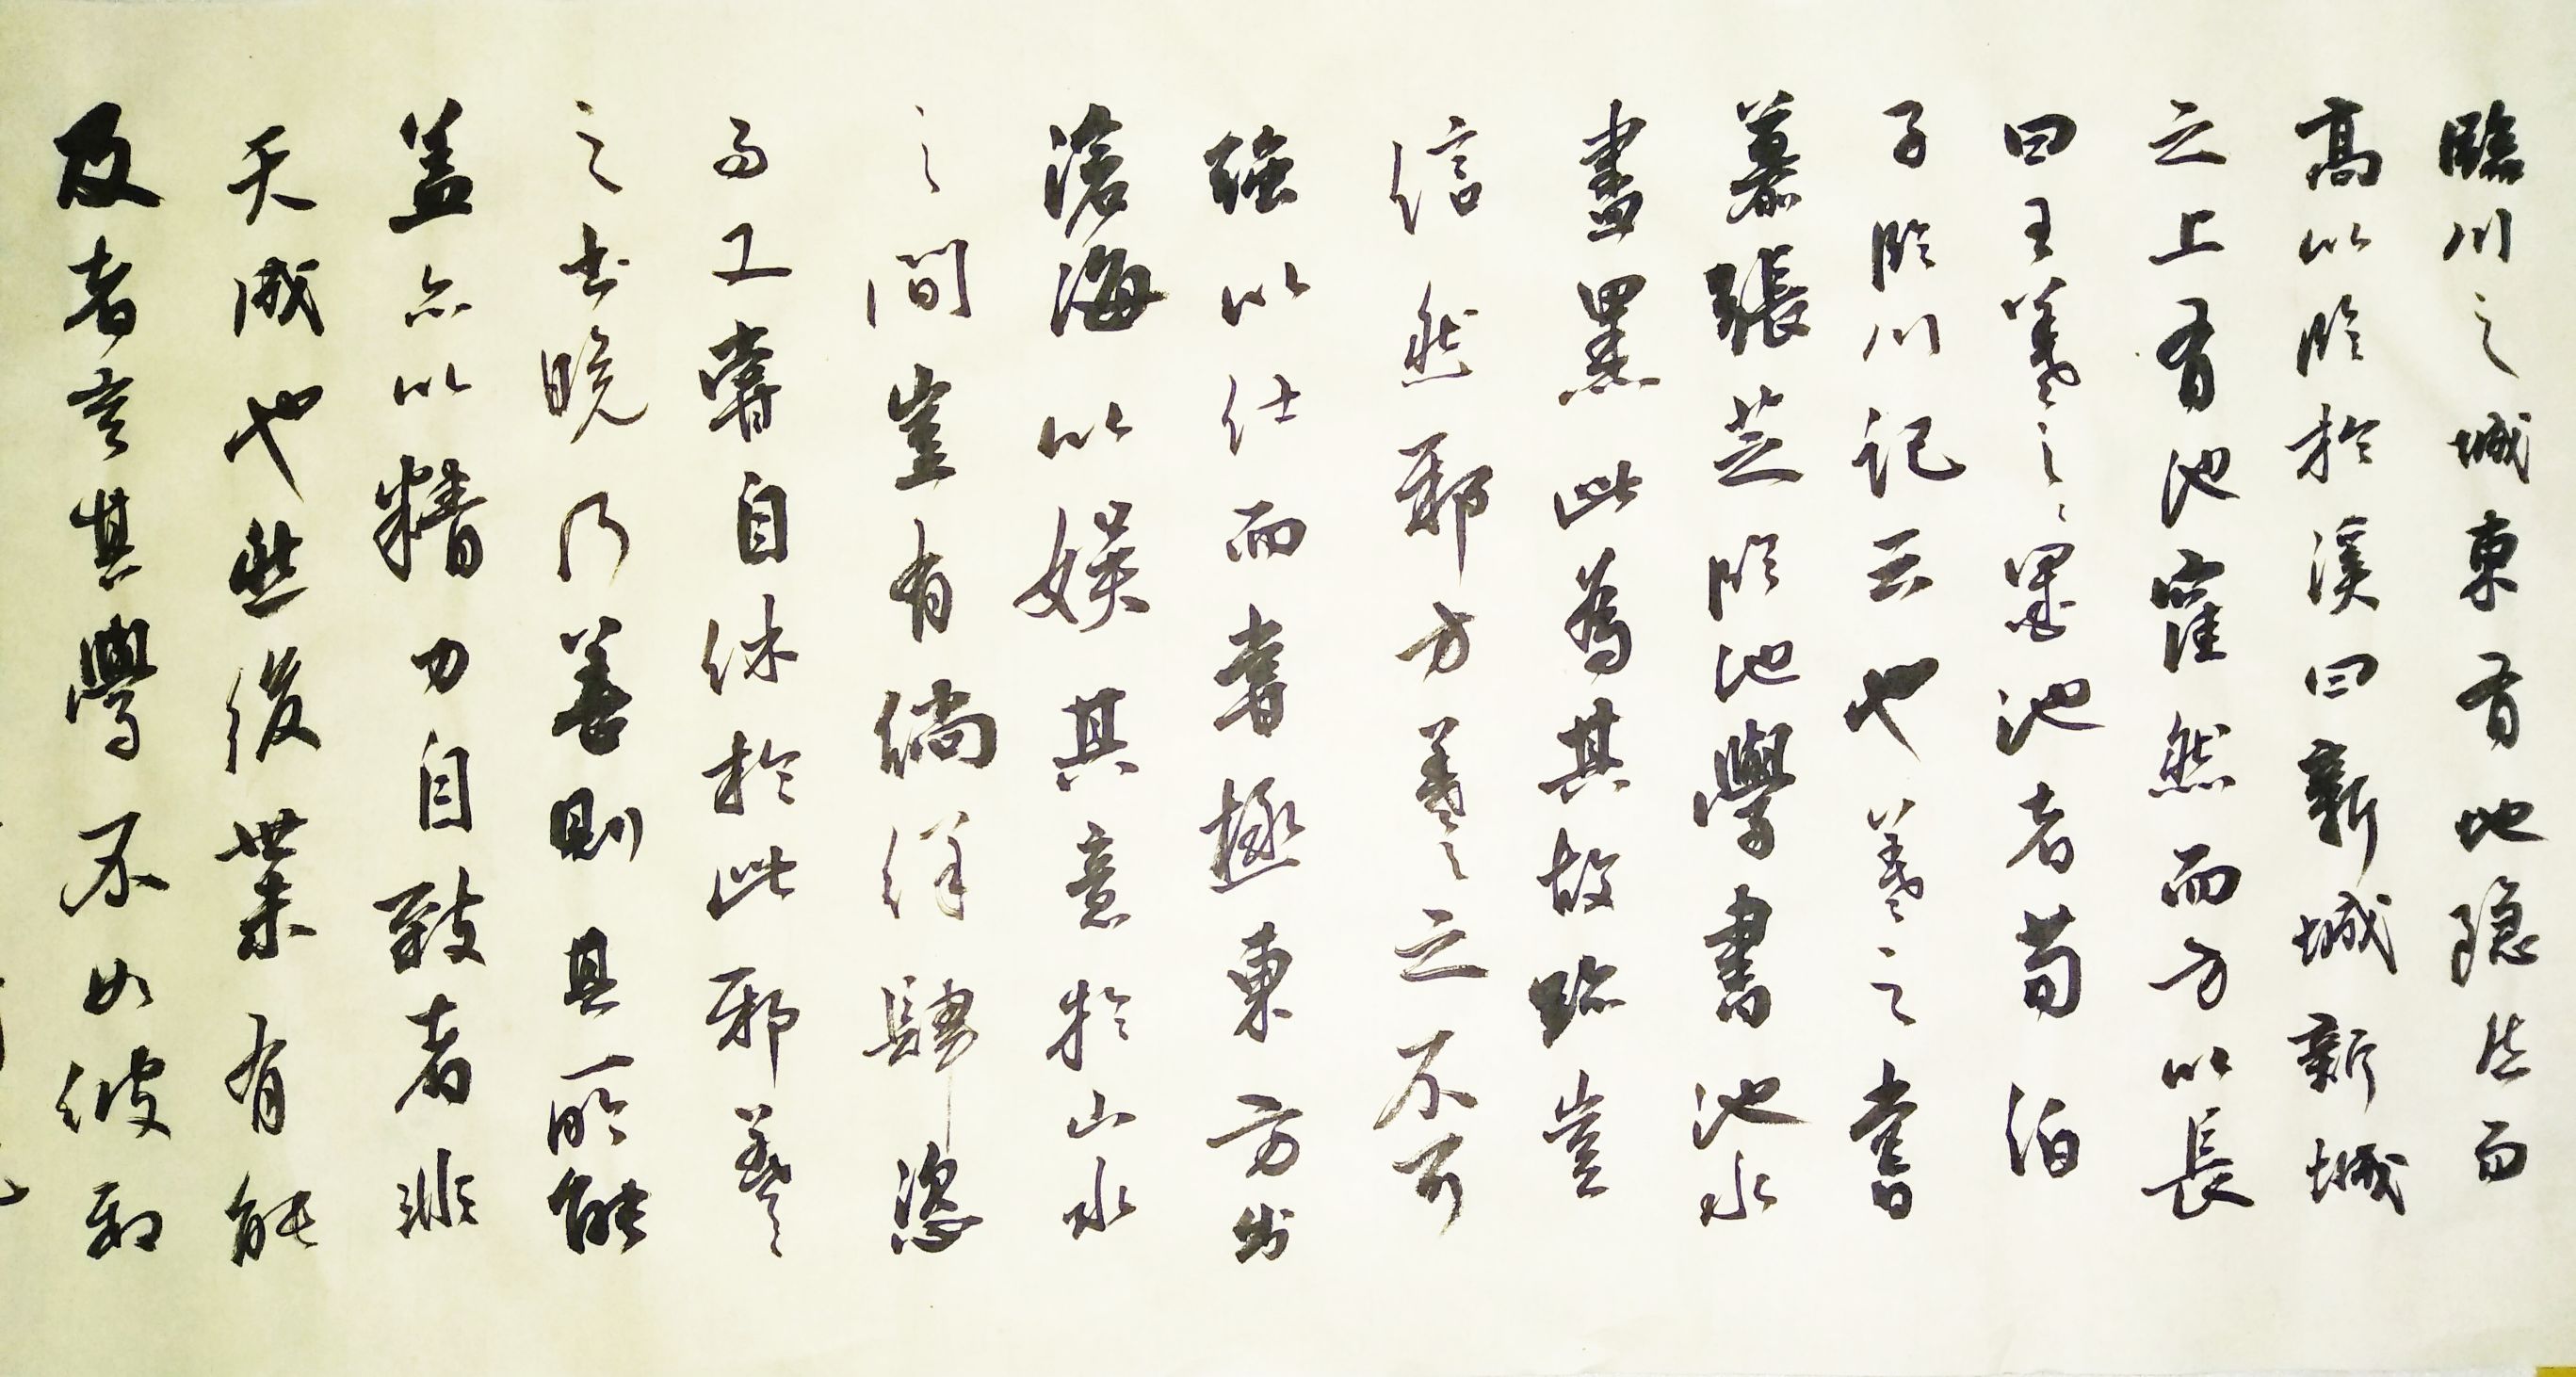 臨川之城東有地隐然而
高以临於溪曰新城新城
之上有池窪然而方以長
曰王羲之之墨池者荀伯
子临川記云也羲之嘗
慕張芝临池學書池水
盡黑此為其故跡豈
信然邪方羲之之不可
強以仕而嘗極東方出
滄海以娱其意於山水
之間豈有徜徉肆恣
而又嘗自休於此邪羲
之之書晚乃善則其所能
盖亦以精力自致者非
天成也然後世未有能
及者豈其學不如彼邪